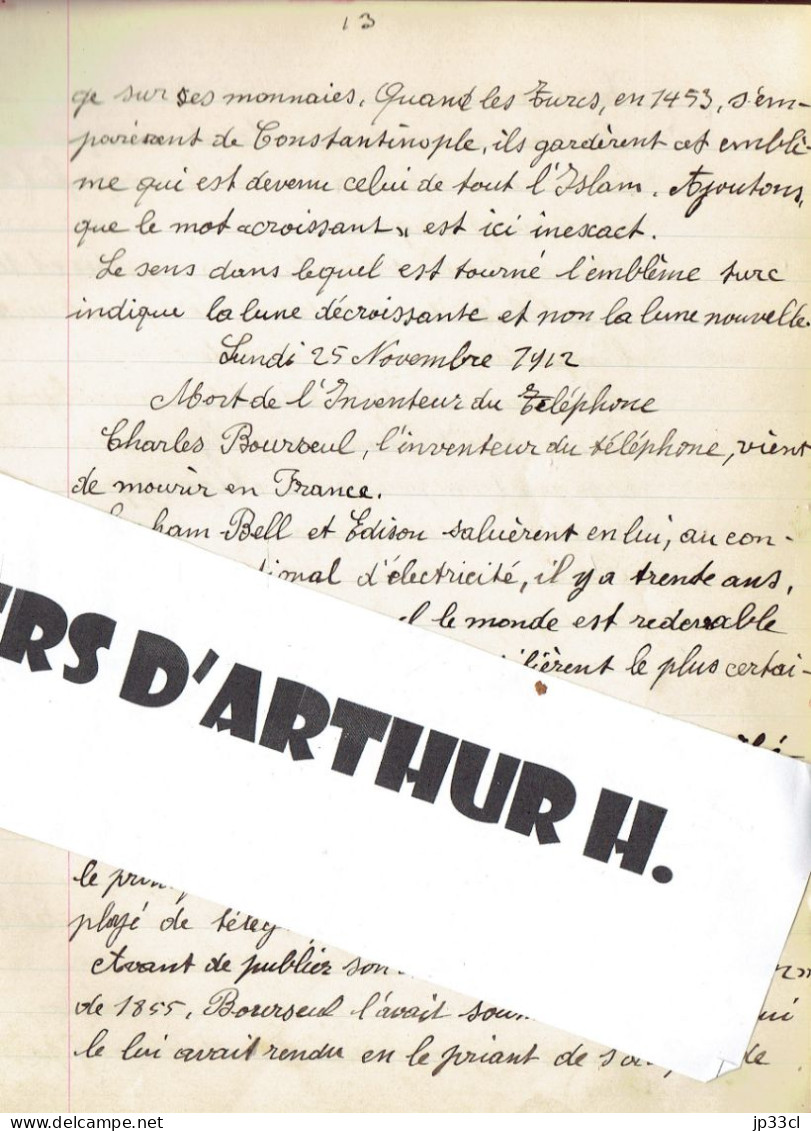 13
ge sur ses monnaies. Quand les Turcs, en 1453, s'em-
parèrent de Constantinople, ils gardèrent cet emblê-
me qui est devenu celui de tout l'Islam. Ajoutons,
que le mot «croissant» est ici inexact.
Le sens dans lequel est tourné l'emblême turc
indique la lune décroissante et non la lune nouvelle.
Lundi 25 Novembre 1912
Mort de l'Inventeur du Téléphone
Charles Bourseul, l'inventeur du téléphone, vient
de mourir en France.
ham-Bell et Edison saluèrent en lui, au con-
d'électricité, il y a trente ans,
le monde est redevable
lièrent le plus certai-
ERS D'ARTHUR H.
le
ployé de
Avant de publier son
de 1855, Bourseul l'avait
le lui avait rendu en le priant de de
delcampe.net
jp33cl